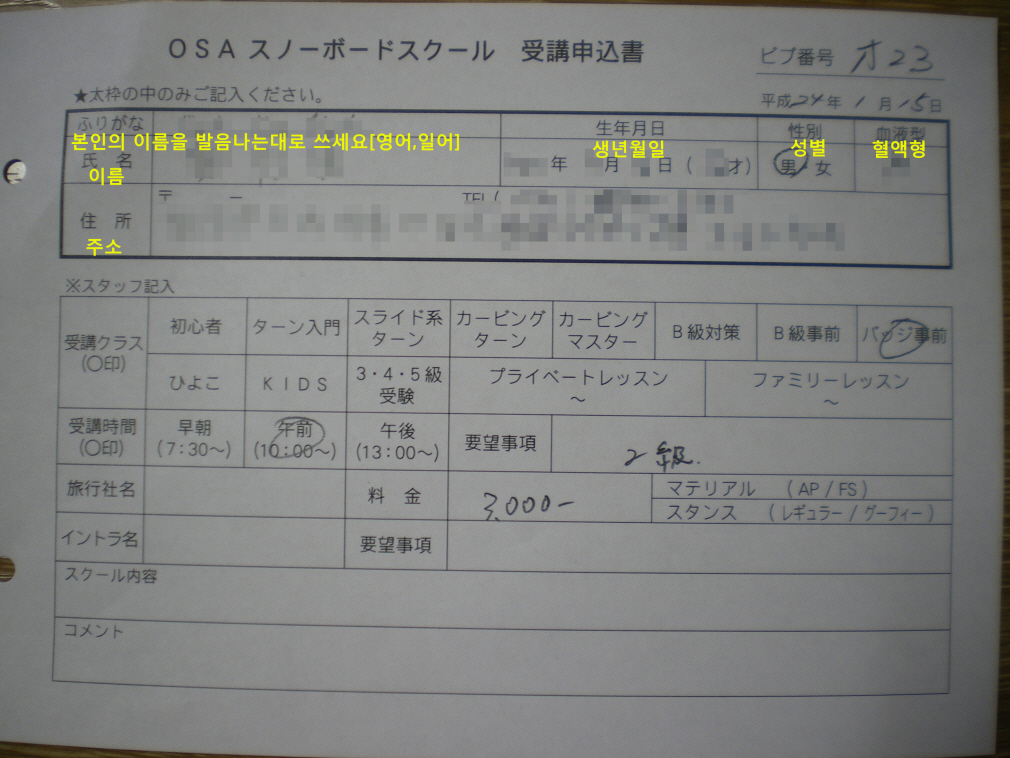 OSA スノーボードスクール 受講申込書
ビブ番号 オ23
★太枠の中のみご記入ください。
平成24年 1月15日
ふりがな 生年月日 性別 血液型
본인의 이름을 발음나는대로 쓰세요[영어,일어] 생년월일 성별 혈액형
氏 名 年 月 日 ( 才) 男・女
이름
〒 ー TEL(
住 所
주소
※スタッフ記入
受講クラス (○印) 初心者 ターン入門 スライド系ターン カービングターン カービングマスター B級対策 B級事前 バッジ事前
ひよこ KIDS 3・4・5級受験 プライベートレッスン ～ ファミリーレッスン ～
受講時間 (○印) 早朝 (7:30～) 午前 (10:00～) 午後 (13:00～) 要望事項 2級.
旅行社名 料 金 3,000- マテリアル (AP/FS)
スタンス (レギュラー/グーフィー)
イントラ名 要望事項
スクール内容
コメント